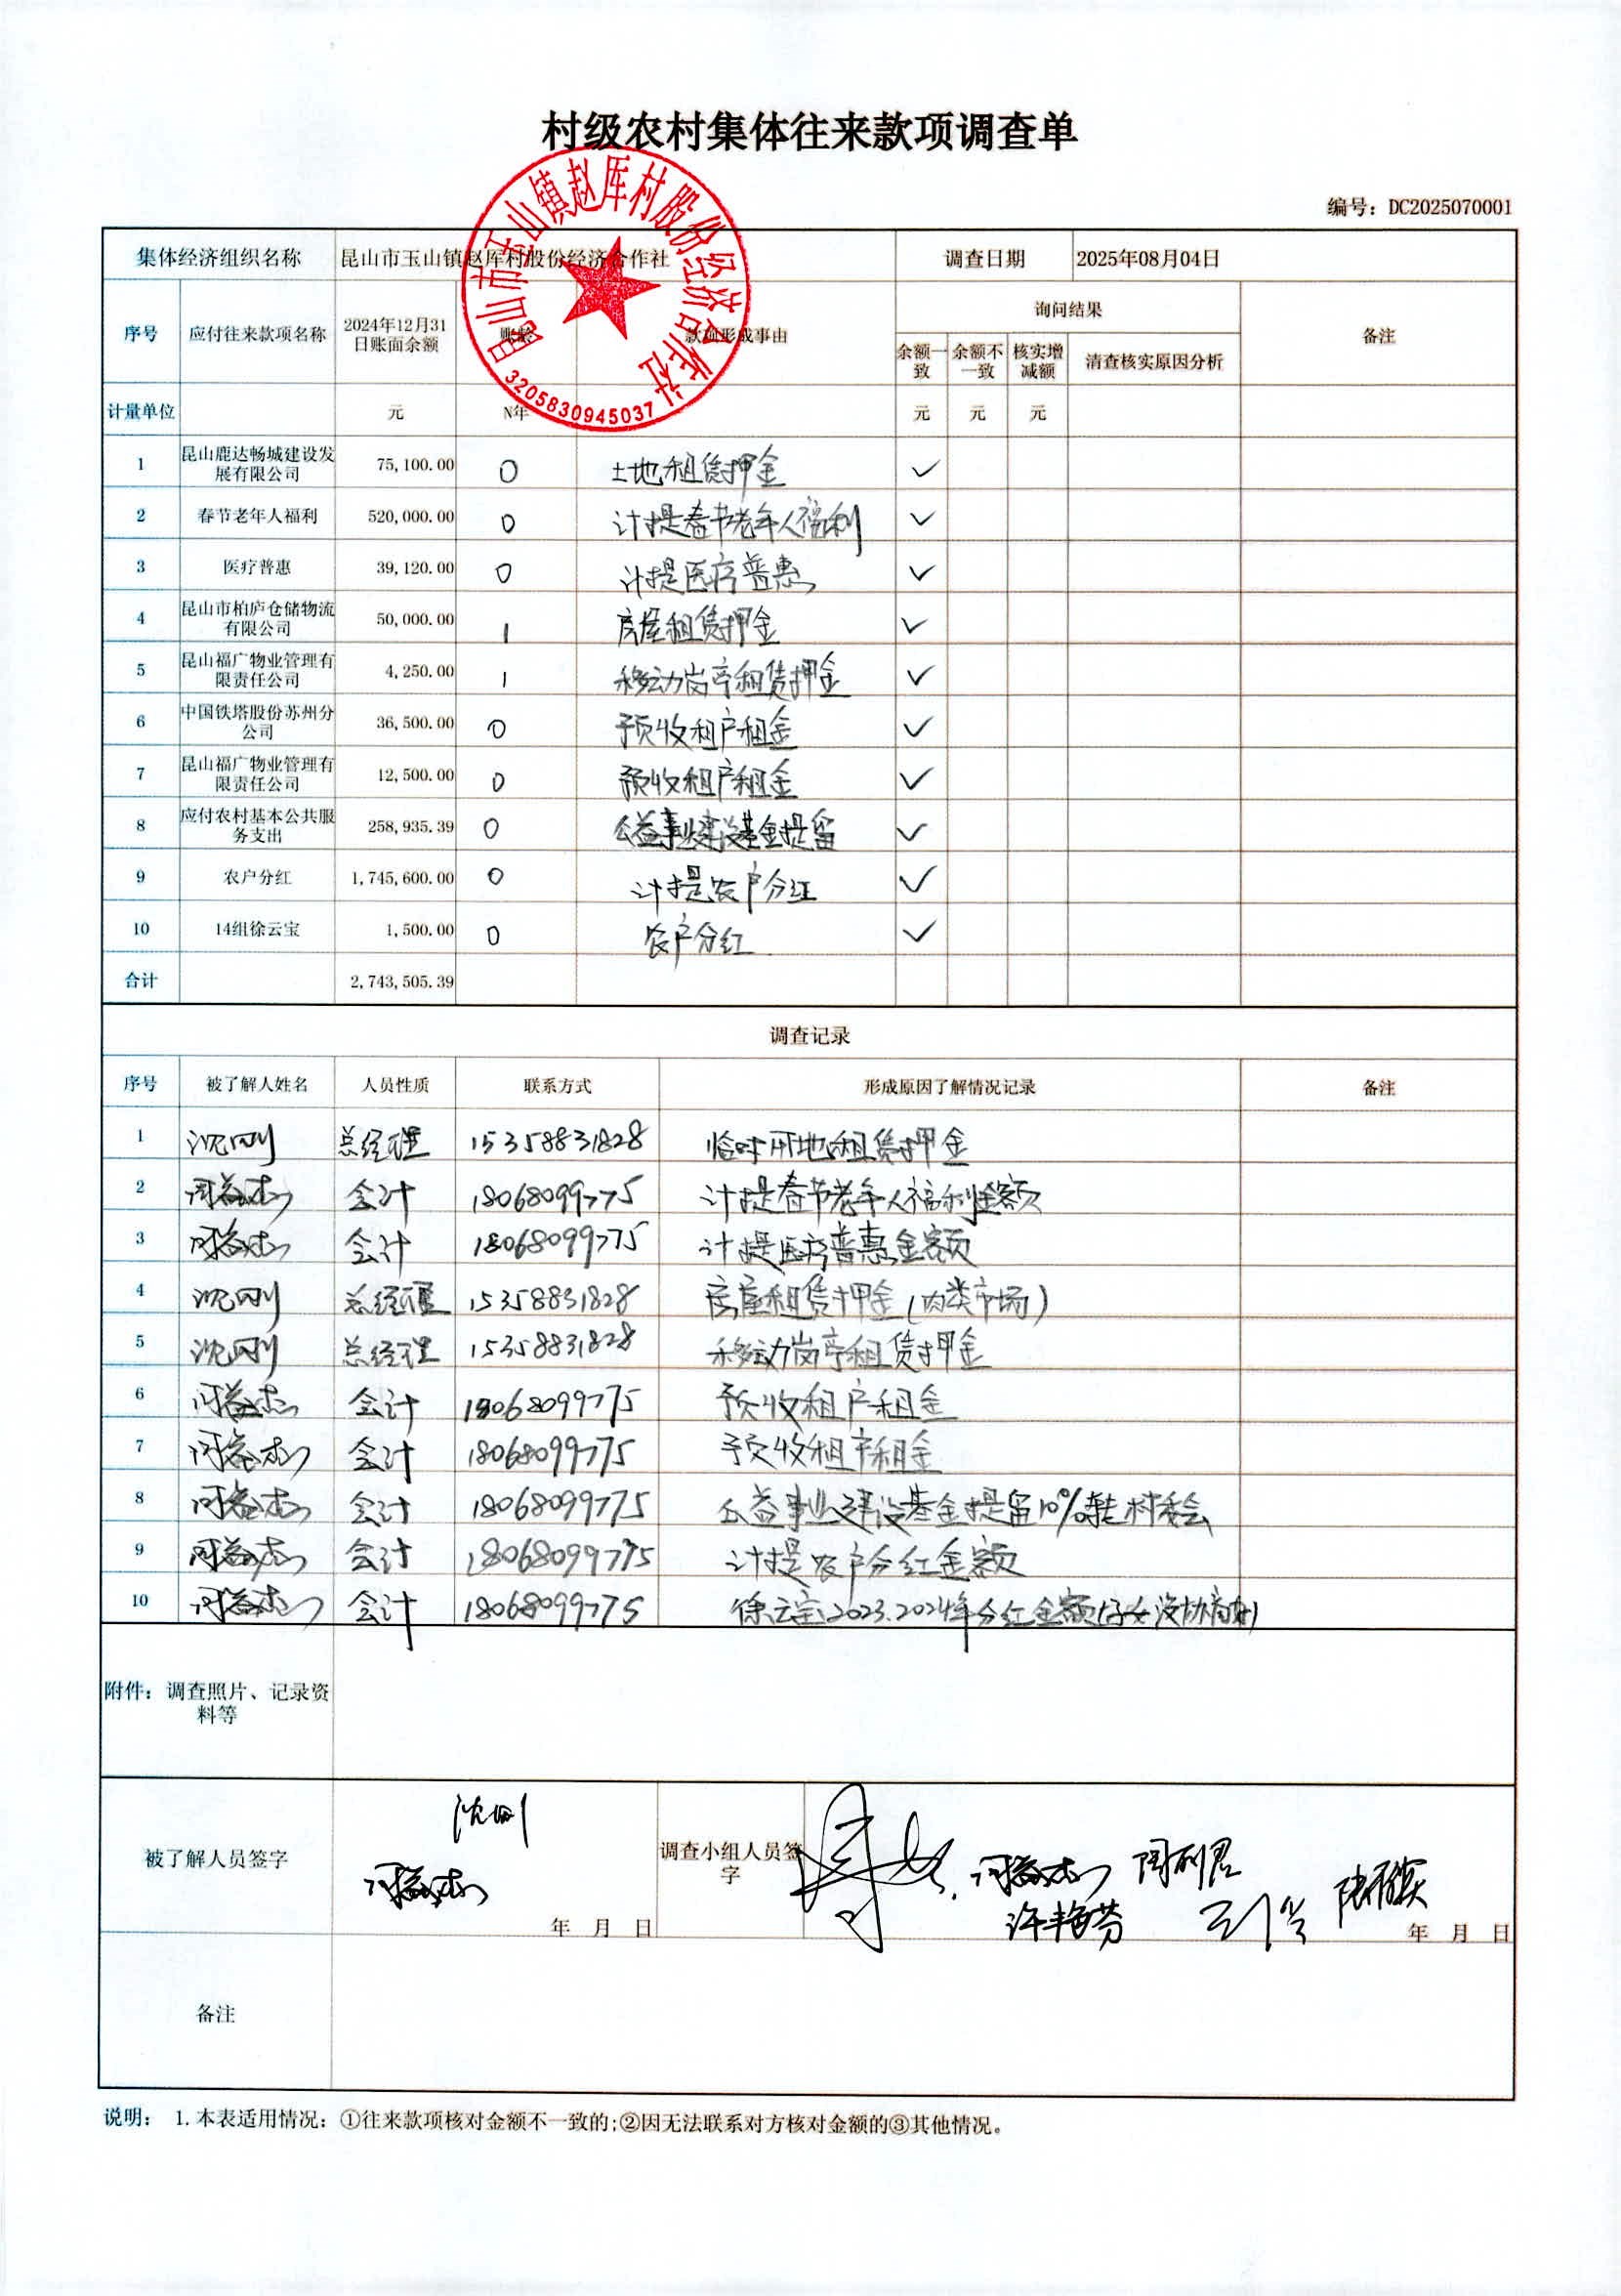 村级农村集体往来款项调查单
编号：DC2025070001
集体经济组织名称 昆山市玉山镇赵厍村股份经济合作社 调查日期 2025年08月04日
昆山市玉山镇赵厍村股份经济合作社
3205830945037
序号 应付往来款项名称 2024年12月31日账面余额 账龄 款项形成事由 询问结果 备注
余额一致 余额不一致 核实增减额 清查核实原因分析
计量单位 元 N年 元 元 元
1 昆山鹿达畅城建设发展有限公司 75,100.00 0 土地租赁押金 ✓
2 春节老年人福利 520,000.00 0 计提春节老年人福利 ✓
3 医疗普惠 39,120.00 0 计提医疗普惠 ✓
4 昆山市柏庐仓储物流有限公司 50,000.00 1 房屋租赁押金 ✓
5 昆山福广物业管理有限责任公司 4,250.00 1 移动岗亭租赁押金 ✓
6 中国铁塔股份苏州分公司 36,500.00 0 预收租户租金 ✓
7 昆山福广物业管理有限责任公司 12,500.00 0 预收租户租金 ✓
8 应付农村基本公共服务支出 258,935.39 0 公益事业建设基金提留 ✓
9 农户分红 1,745,600.00 0 计提农户分红 ✓
10 14组徐云宝 1,500.00 0 农户分红 ✓
合计 2,743,505.39
调查记录
序号 被了解人姓名 人员性质 联系方式 形成原因了解情况记录 备注
1 沈刚 总经理 15358831828 临时用地租赁押金
2 会计 18068099775 计提春节老年人福利金额
3 会计 18068099775 计提医疗普惠金额
4 沈刚 总经理 15358831828 房屋租赁押金(肉类市场)
5 沈刚 总经理 15358831828 移动岗亭租赁押金
6 会计 18068099775 预收租户租金
7 会计 18068099775 预收租户租金
8 会计 18068099775 公益事业建设基金提留10%转村委会
9 会计 18068099775 计提农户分红金额
10 会计 18068099775 徐云宝2023.2024年分红金额(子女没协商好)
附件：调查照片、记录资料等
被了解人员签字 沈刚 年 月 日
调查小组人员签字 许艳芬 年 月 日
备注
说明： 1.本表适用情况：①往来款项核对金额不一致的;②因无法联系对方核对金额的③其他情况。